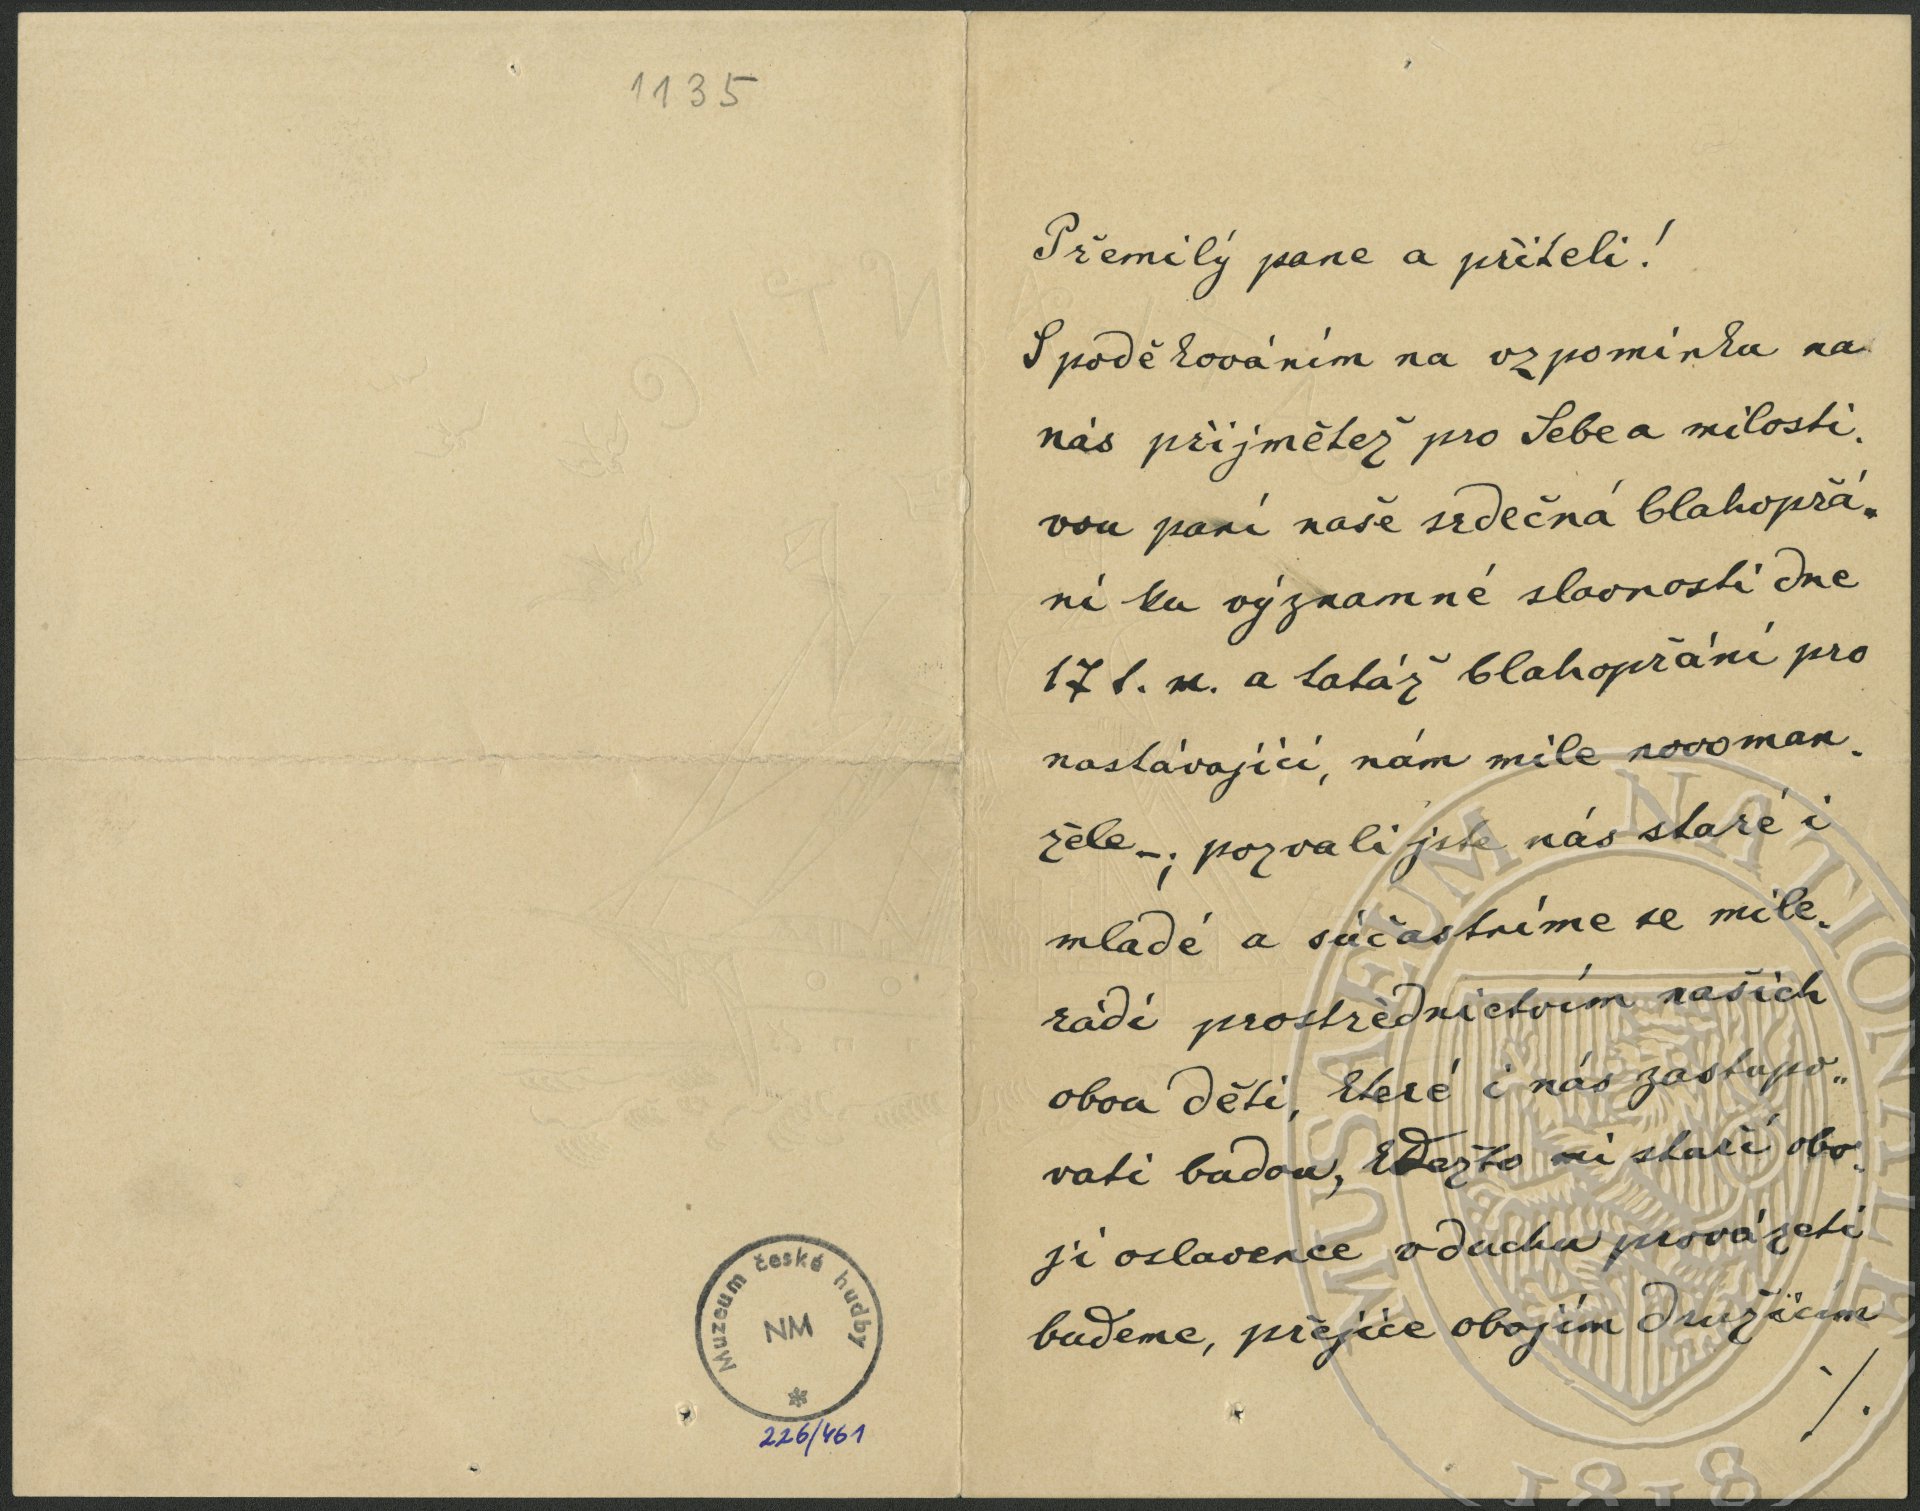 1135
Muzeum české hudby
NM
226/461
Přemilý pane a příteli!
S poděkováním na vzpomínku na
nás přijmětež pro Sebe a milosti-
vou paní naše srdečná blahopřá-
ní ku významné slavnosti dne
17 t. m. a tatáž blahopřání pro
nastávající, nám milé novoman-
žele -; pozvali jste nás staré i
mladé a súčastníme se mile-
rádi prostřědnictvím našich
obou dětí, které i nás zastupo-
vati budou, kdežto mi staří obo-
jí oslavence v duchu provázeti
budeme, přejíce obojím družícím
./.
MUSAEUM NATIONALE
1818